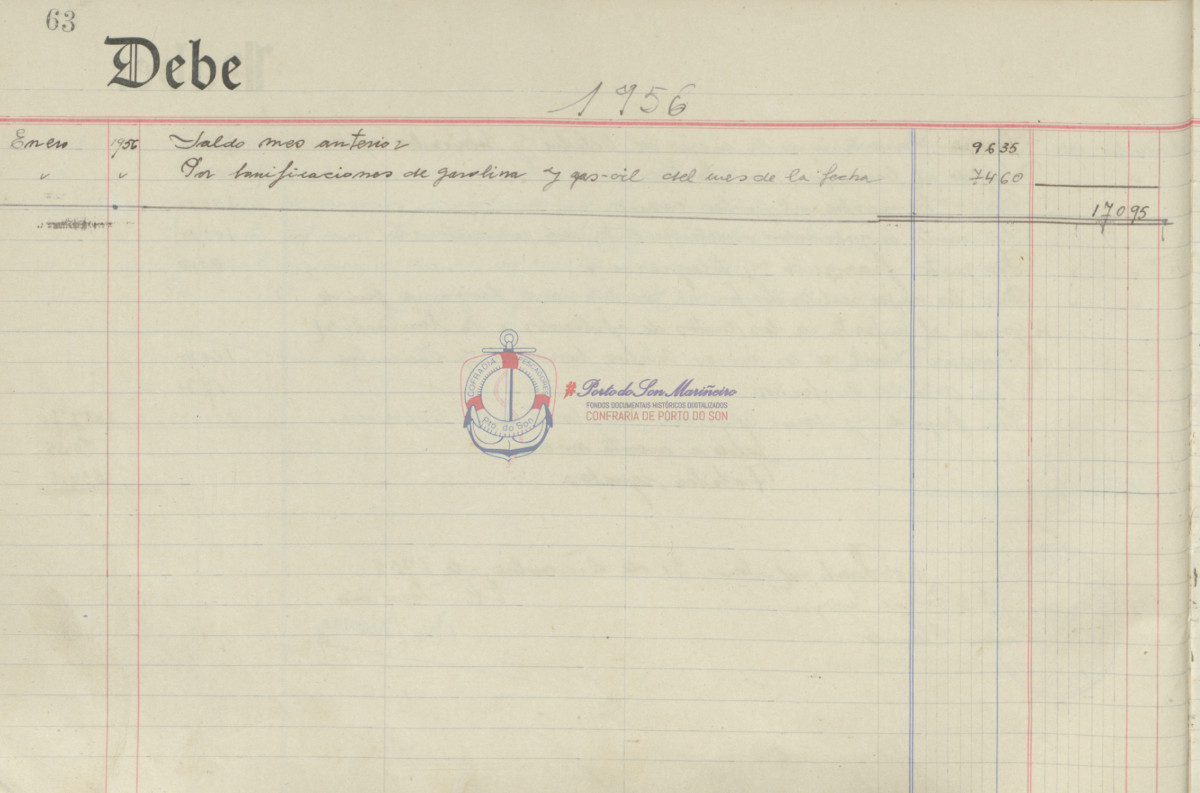 63
Debe
1956
Enero 1956 Saldo mes anterior 9635
" " Por bonificaciones de gasolina y gas-oil del mes de la fecha 7460
17095
COFRADIA PESCADORES
Pto. do Son
#Porto do Son Mariñeiro
FONDOS DOCUMENTAIS HISTÓRICOS DIXITALIZADOS
CONFRARIA DE PORTO DO SON